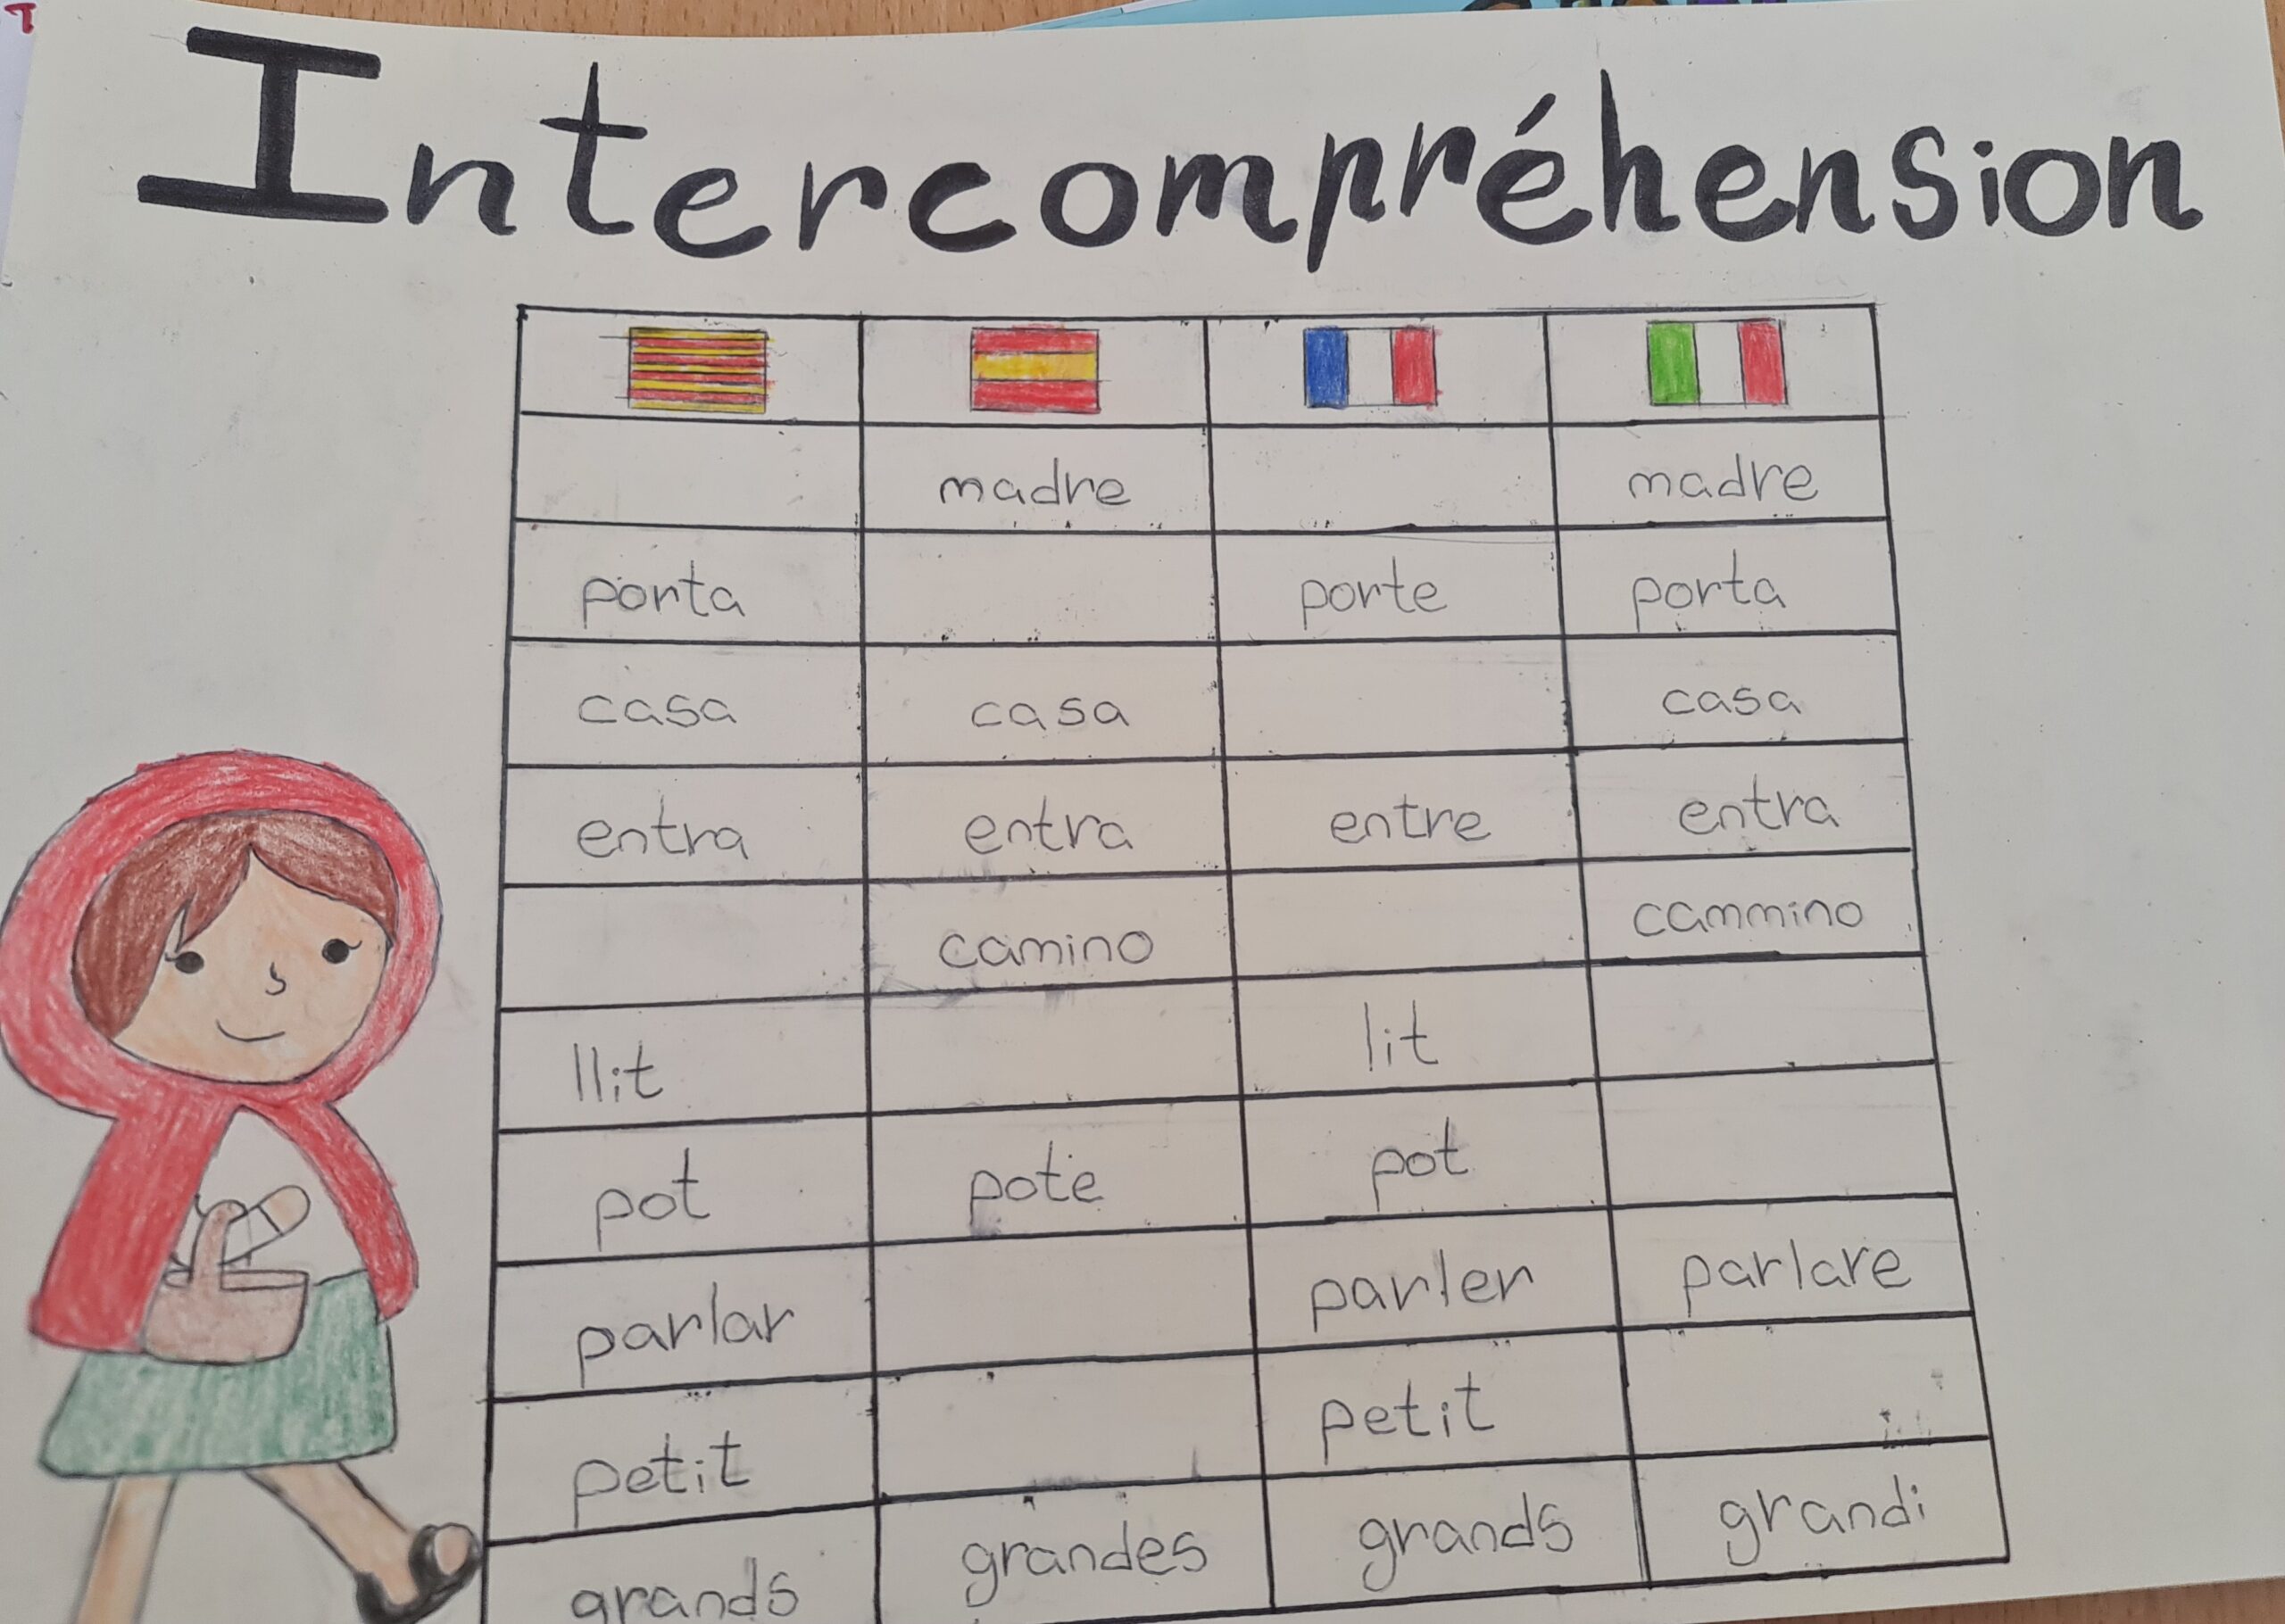 Intercompréhension
madre madre
porta porte porta
casa casa casa
entra entra entre entra
camino cammino
llit lit
pot pote pot
parlar parler parlare
petit petit
grands grandes grands grandi